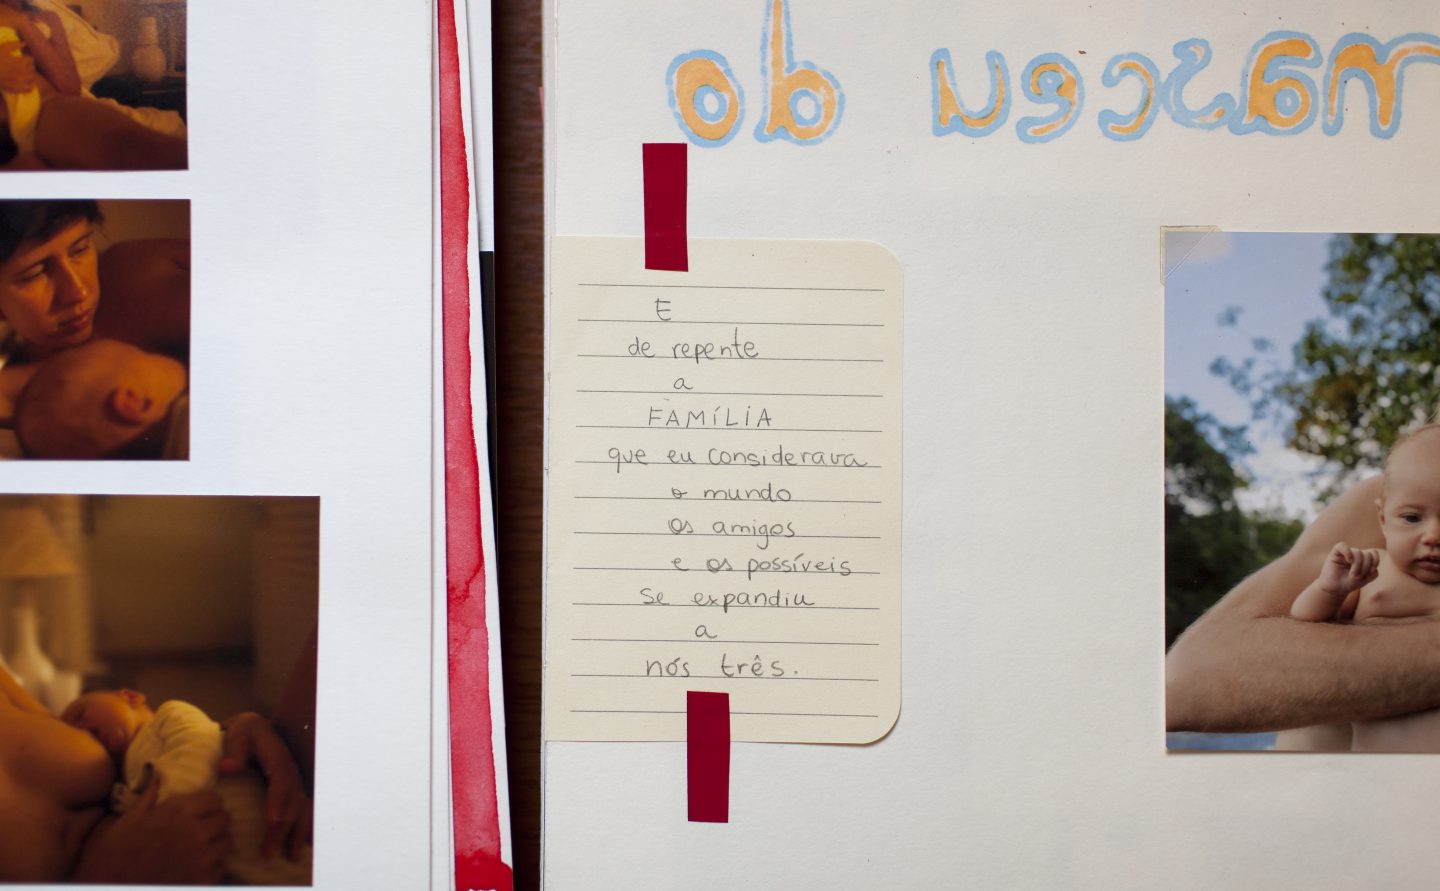 E
de repente
a
FAMÍLIA
que eu considerava
o mundo
os amigos
e os possíveis
se expandiu
a
nós três.